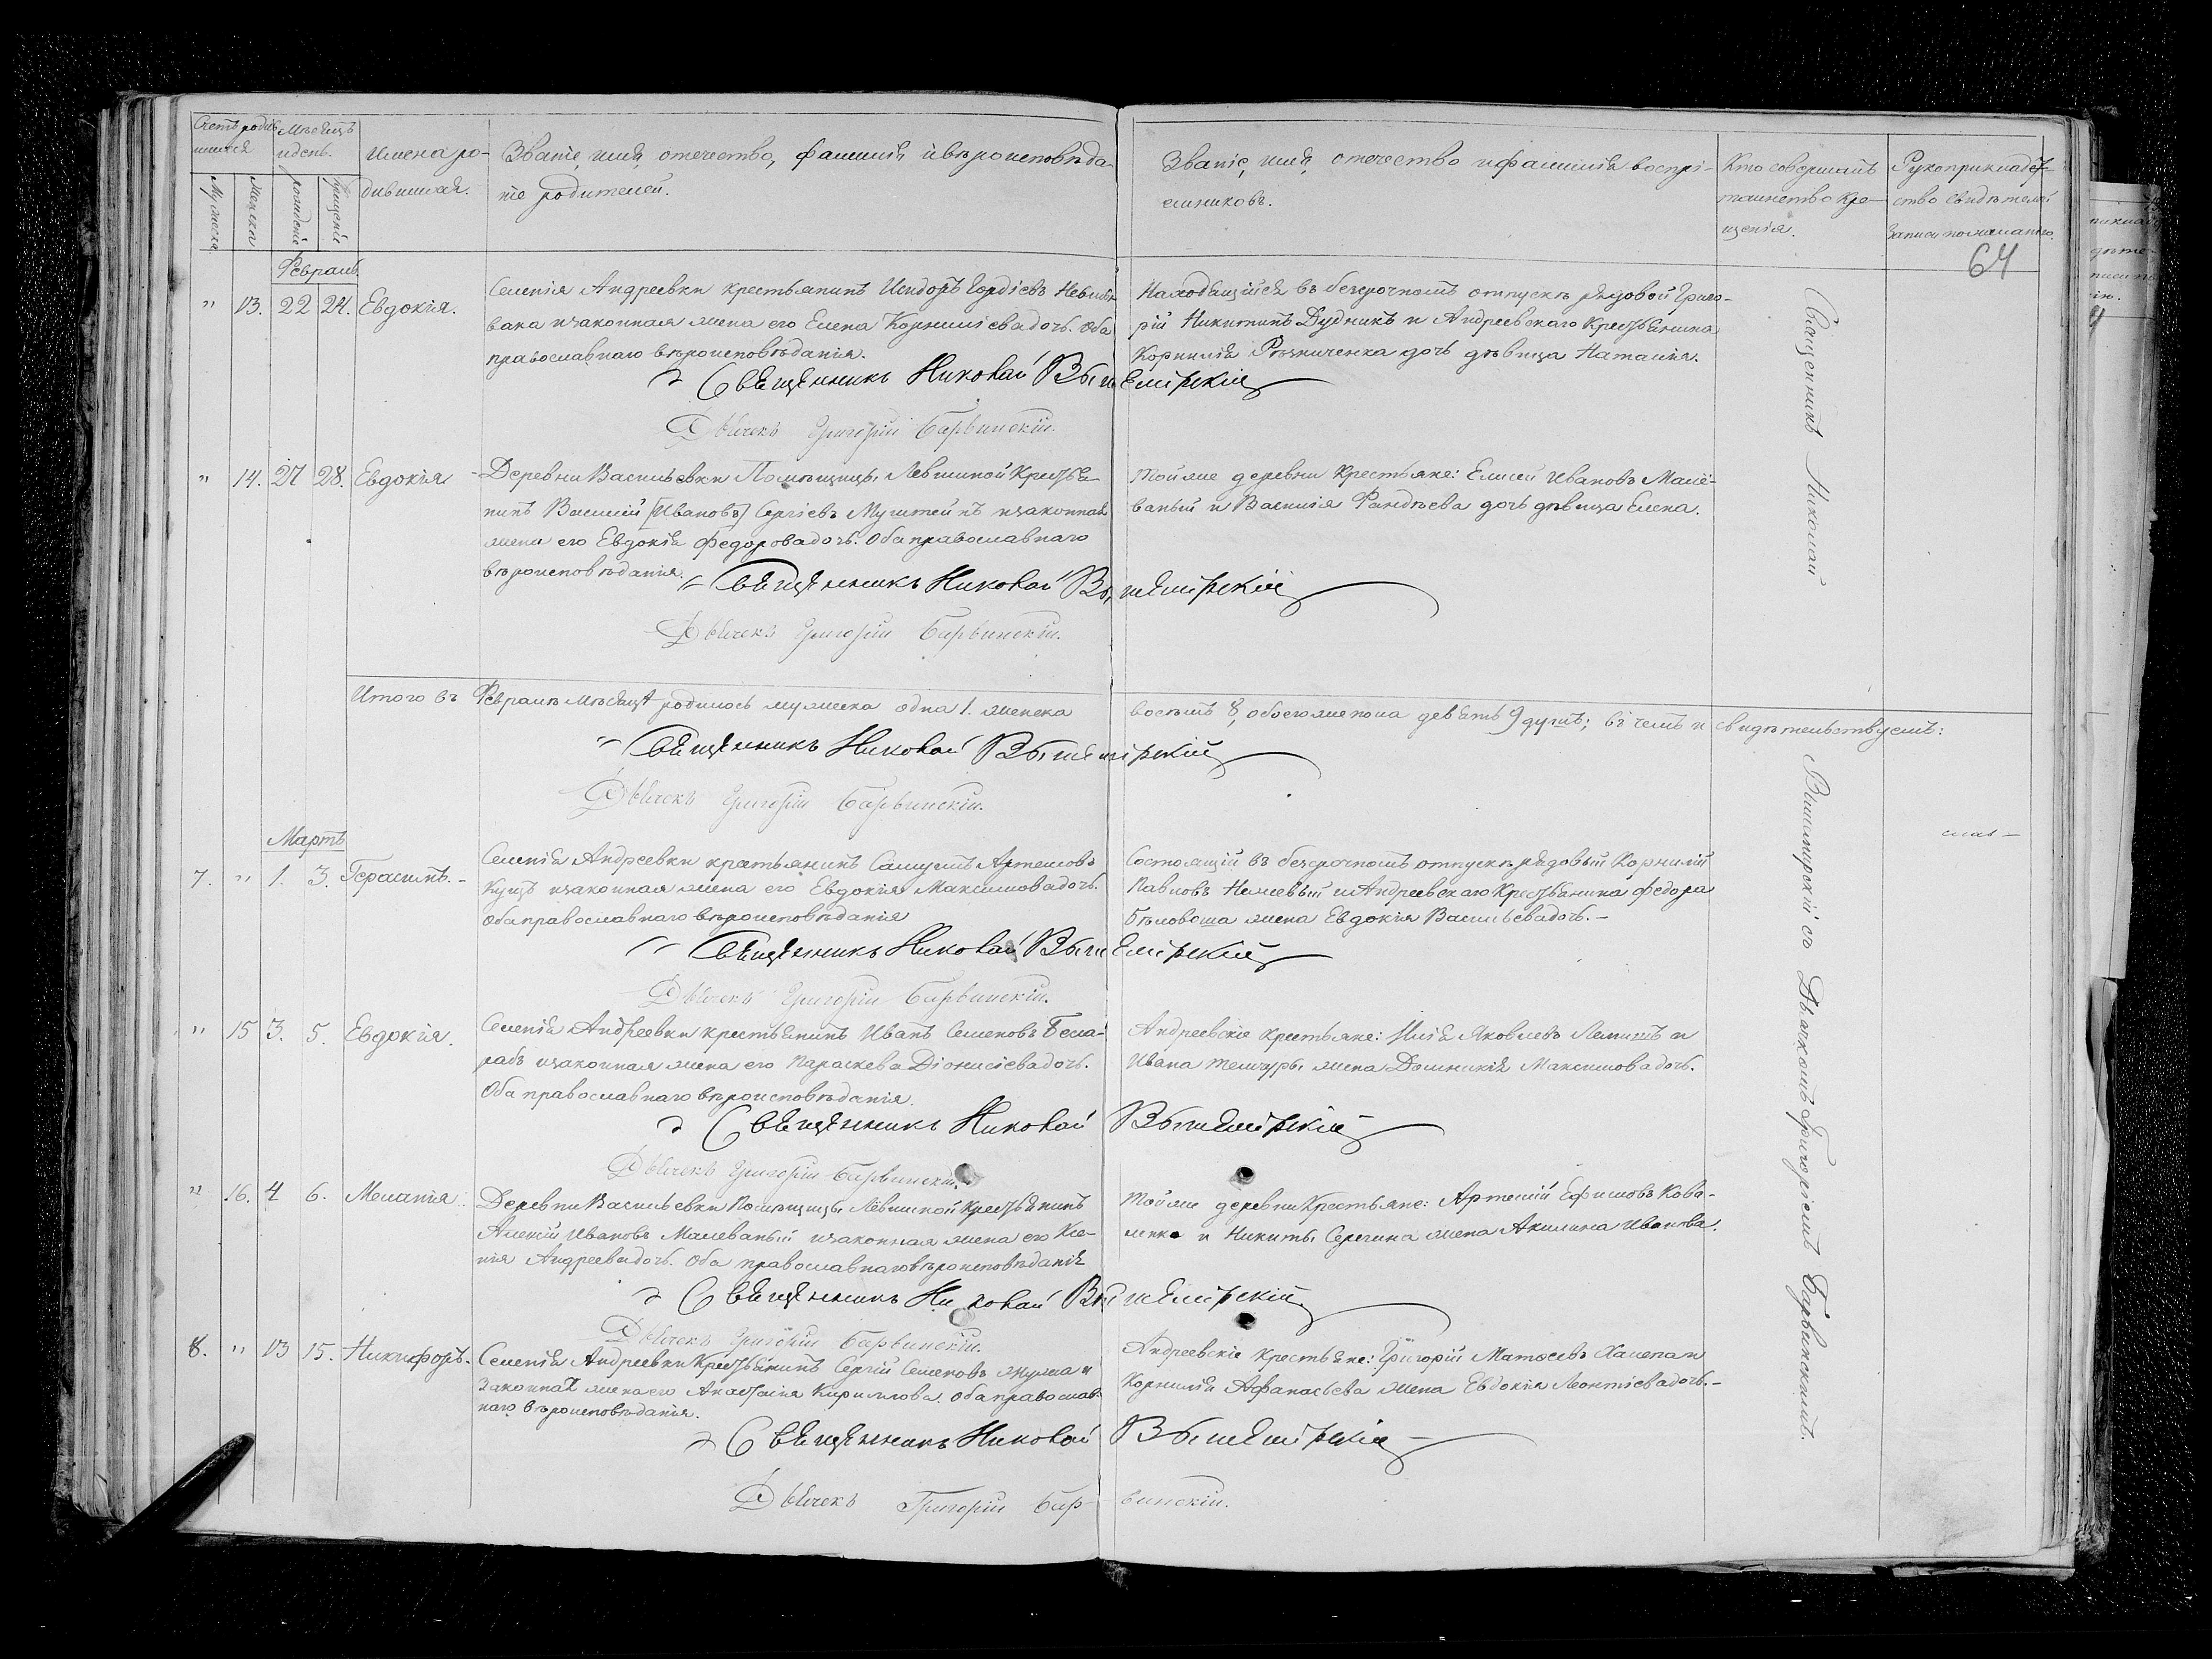 Счетъ родив
шихся
Мѣсяцъ
и день.
Имена ро-
дившихся.
Званіе, имя, отечество, фамилія и вѣроисповѣда-
ніе родителей.
Званіе, имя, отечество и фамилія воспрі-
емниковъ.
Кто совершалъ
таинство кре-
щенія.
Рукоприкладст-
ство свидѣтелей
записи по желанію.
Мужеска
Женска
рожденія
крещенія
64
Февраль.
" 13. 22 24. Евдокія.
Селенія Андреевки крестьянинъ Исидоръ Гордіевъ
вака и законная жена его Елена Корнилісва дочь. Оба
православнаго вѣроисповѣданія.
Находящійся въ безсрочномъ отпускѣ рядовой Григо-
рій Никитинъ Дудникъ и Андреевскаго Крестьянина
Корнилія Рѣзниченка дочь дѣвица Наталія.
Священникъ Николай Вышемірскій
Дьячекъ Григорій Барвинскій.
" 14. 27 28. Евдокія
Деревни Васильевки Помѣщицы Левшиной Крестья-
нинъ Василій [Ивановъ] Сергіевъ и законная
жена его Евдокія Федорова дочь. Оба православнаго
вѣроисповѣданія.
Той же деревни Крестьяне: Елисей Ивановъ Малё-
ваный и Василія Фандѣева дочь дѣвица Елена.
Священникъ Николай Вышемірскій
Дьячекъ Григорій Барвинскій.
Итого въ Февралѣ мѣсяцѣ родилось мужеска одна 1. женска восѣмъ 8, обоего же пола девять 9 душъ; въ чемъ и свидѣтельствуемъ:
Священникъ Николай Вышемірскій
Дьячекъ Григорій Барвинскій.
Мартъ
7. " 1. 3. Герасимъ. -
Селенія Андреевки крестьянинъ Самуилъ Артемовъ
Куцъ и законная жена его Евдокія Максимова дочь.
Оба православнаго вѣроисповѣданія
Состоящій въ безсрочномъ отпускѣ рядовый Корнилій
Павловъ и Андреевскаго Крестьянина Федора
Бѣловоша жена Евдокія Васильева дочь. -
Священникъ Николай Вышемірскій
Дьячекъ Григорій Барвинскій.
" 15 3. 5. Евдокія.
Селенія Андреевки крестьянинъ Иванъ Семеновъ Беса-
рабъ и законная жена его Параскева Діонисіева дочь.
Оба православнаго вѣроисповѣданія.
Андреевскіе крестьяне: Илія Яковлевъ и
Ивана жена Домникія Максимова дочь.
Священникъ Николай Вышемірскій
Дьячекъ Григорій Барвинскій.
" 16. 4 6. Меланія.
Деревни Васильевки Помѣщицы Левшиной Крестьянинъ
Алексій Ивановъ Малеваный и законная жена его Ксе-
нія Андреева дочь. Оба православнаго вѣроисповѣданія
Той же деревни Крестьяне: Артемій Ефимовъ Кова-
ленко и Никиты Серегина жена Акилина Иванова.
Священникъ Николай Вышемірскій
Дьячекъ Григорій Барвинскій.
8. " 13 15. Никифоръ.
Селенія Андреевки Крестьянинъ Сергій Семеновъ и
законная жена его Анастасія Кириллова. Оба православ-
наго вѣроисповѣданія.
Андреевскіе крестьяне: Григорій Матѳеевъ и
Корнилія Афанасьева жена Евдокія Леонтіева дочь. -
Священникъ Николай Вышемірскій
Дьячекъ Григорій Барвинскій.
Священникъ Николай Вышемирскій съ Дьячкомъ Григоріемъ Барвинскимъ.